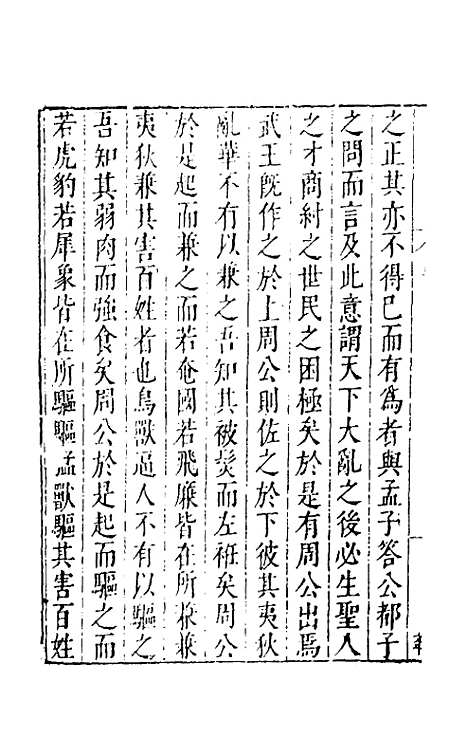 之正其亦不得已而有爲者與孟子答公都子
之問而言及此意謂天下大亂之後必生聖人
之才商紂之世民之困極矣於是有周公出焉
武王旣作之於上周公則佐之於下彼其夷狄
亂華不有以兼之吾知其被髮而左衽矣周公
於是起而兼之而若奄國若飛廉皆在所兼兼
夷狄兼其害百姓者也鳥獸逼人不有以驅之
吾知其弱肉而強食矣周公於是起而驅之而
若虎豹若犀象皆在所驅驅孟獸驅其害百姓